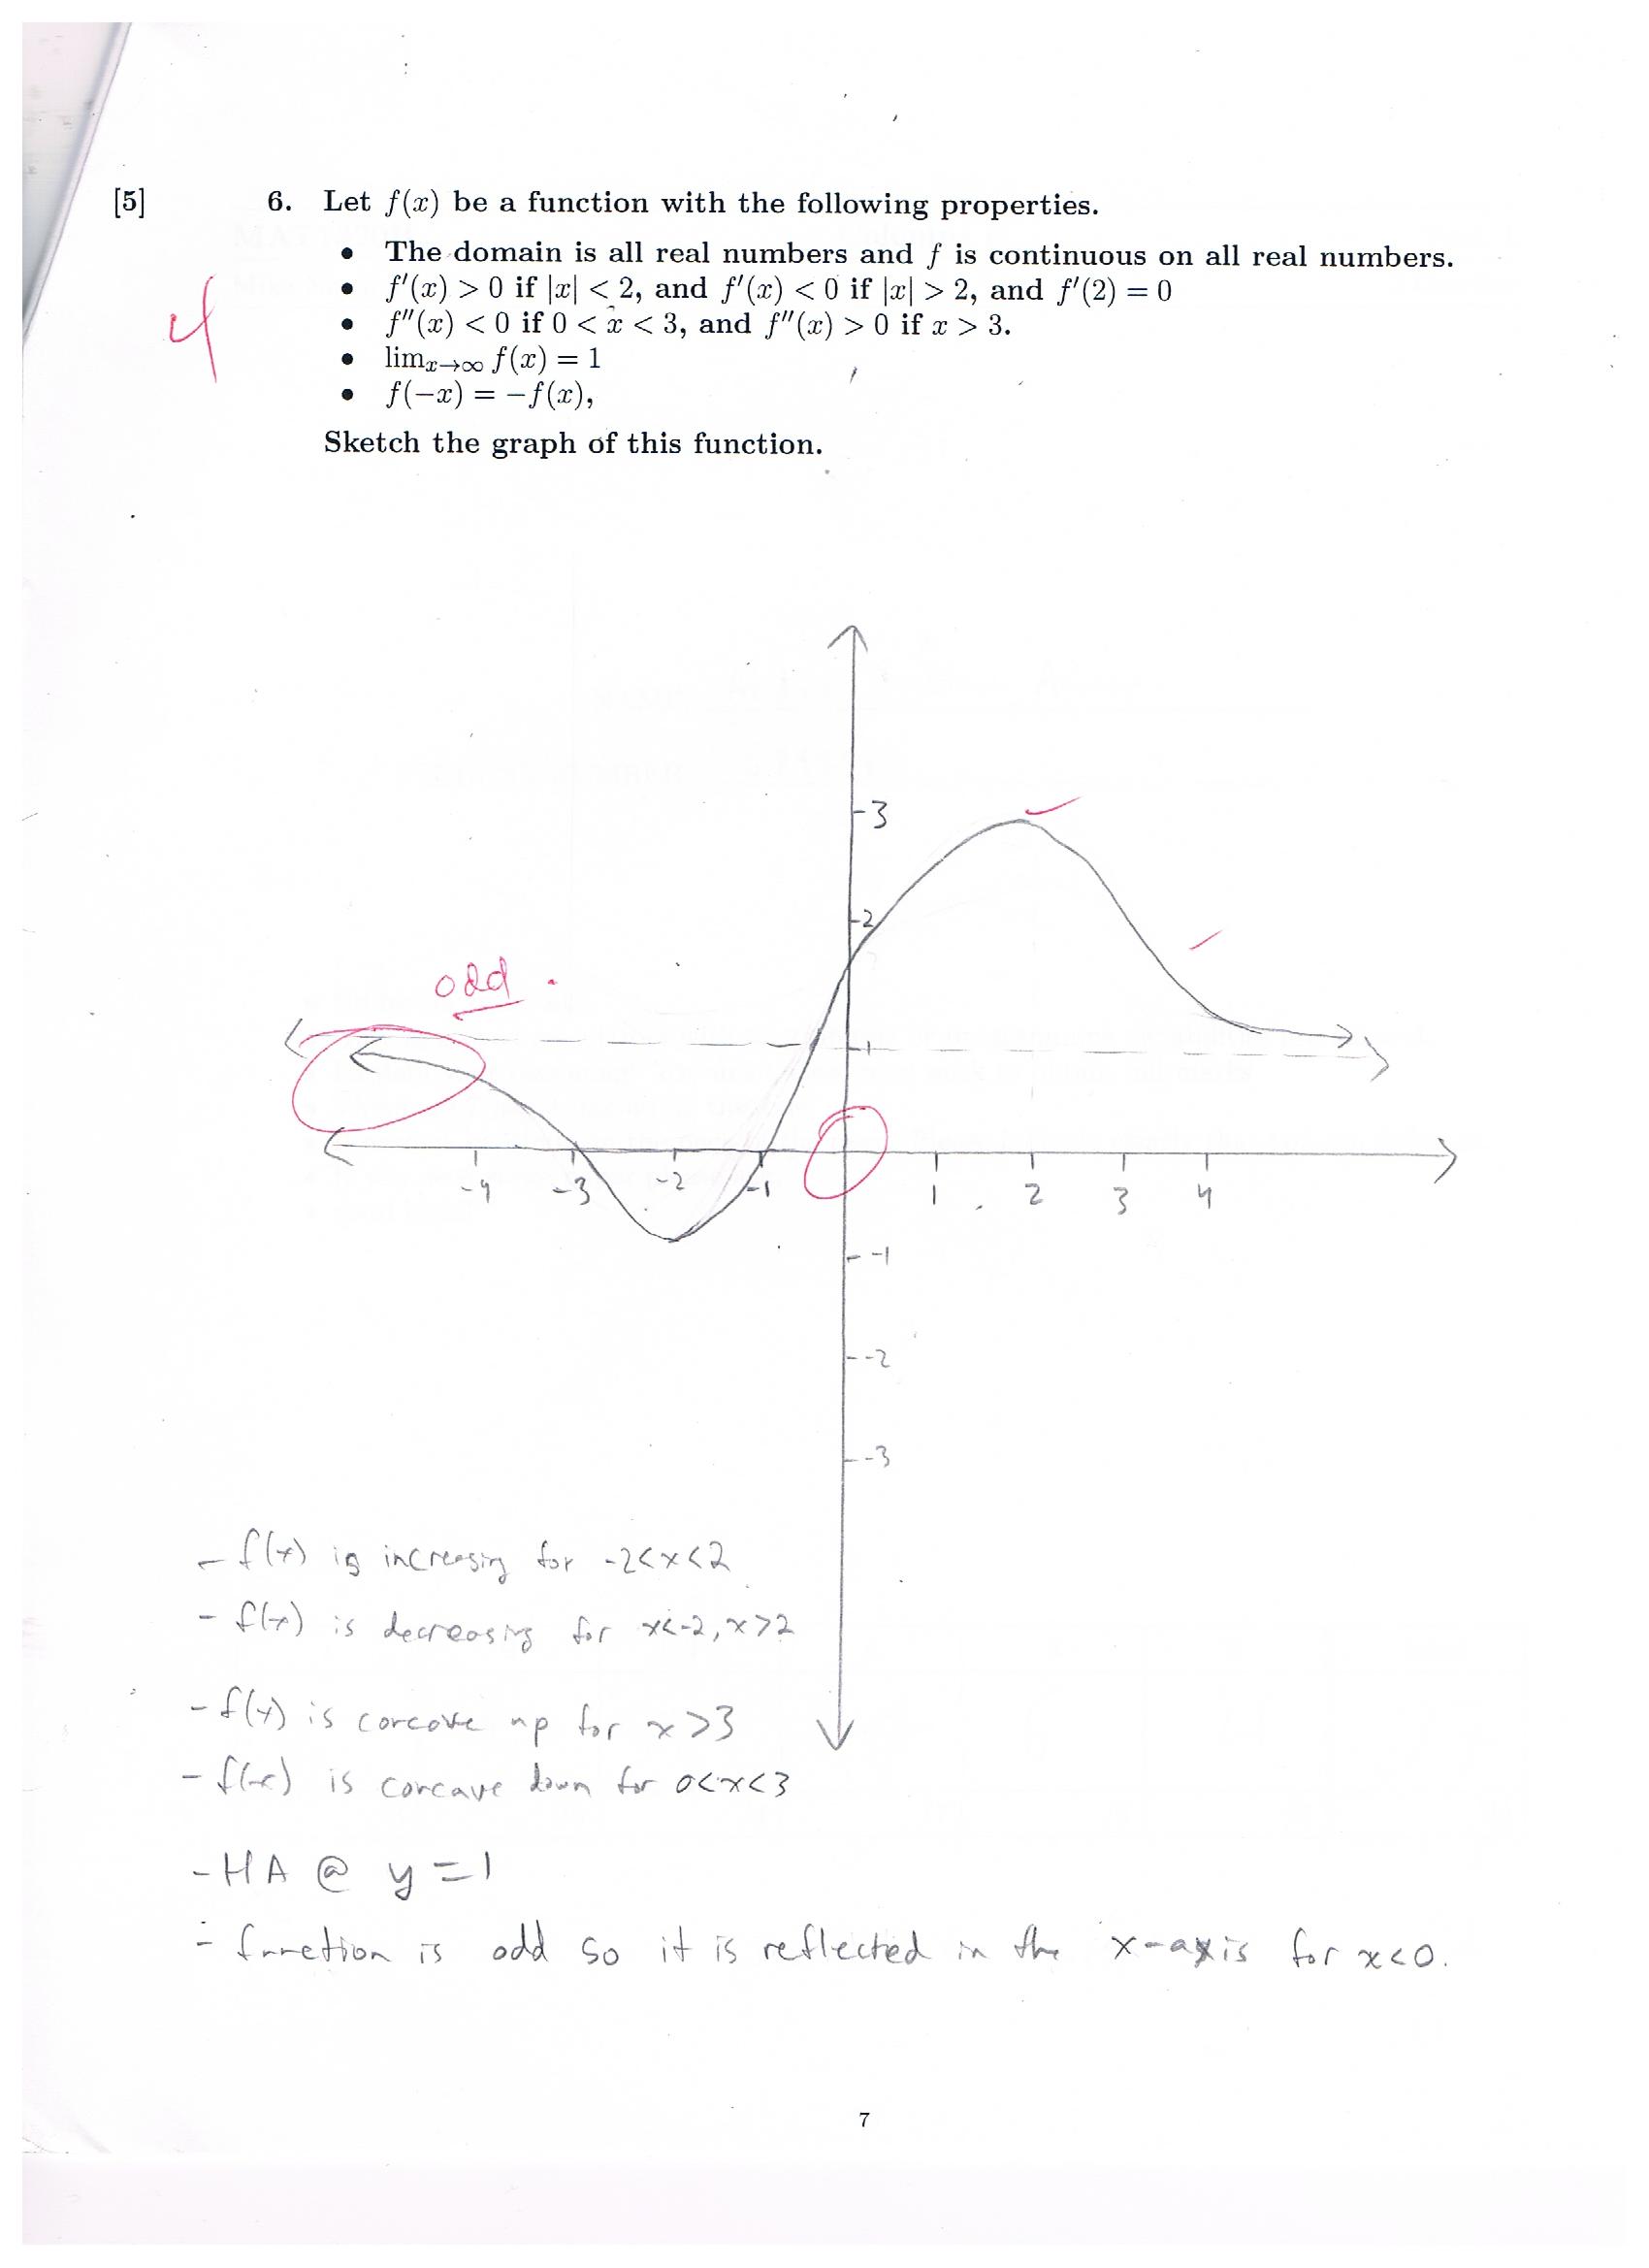 [5] 6. Let f(x) be a function with the following properties.
• The domain is all real numbers and f is continuous on all real numbers.
• f′(x) > 0 if |x| < 2, and f′(x) < 0 if |x| > 2, and f′(2) = 0
• f″(x) < 0 if 0 < x < 3, and f″(x) > 0 if x > 3.
4
• lim_{x→∞} f(x) = 1
• f(−x) = −f(x),
Sketch the graph of this function.
3
2
odd
1
-4 -3 -2 -1 1 2 3 4
-1
-2
-3
- f(x) is increasing for -2<x<2
- f(x) is decreasing for x<-2, x>2
- f(x) is concave up for x>3
- f(x) is concave down for 0<x<3
- HA @ y=1
- function is odd so it is reflected in the x-axis for x<0.
7